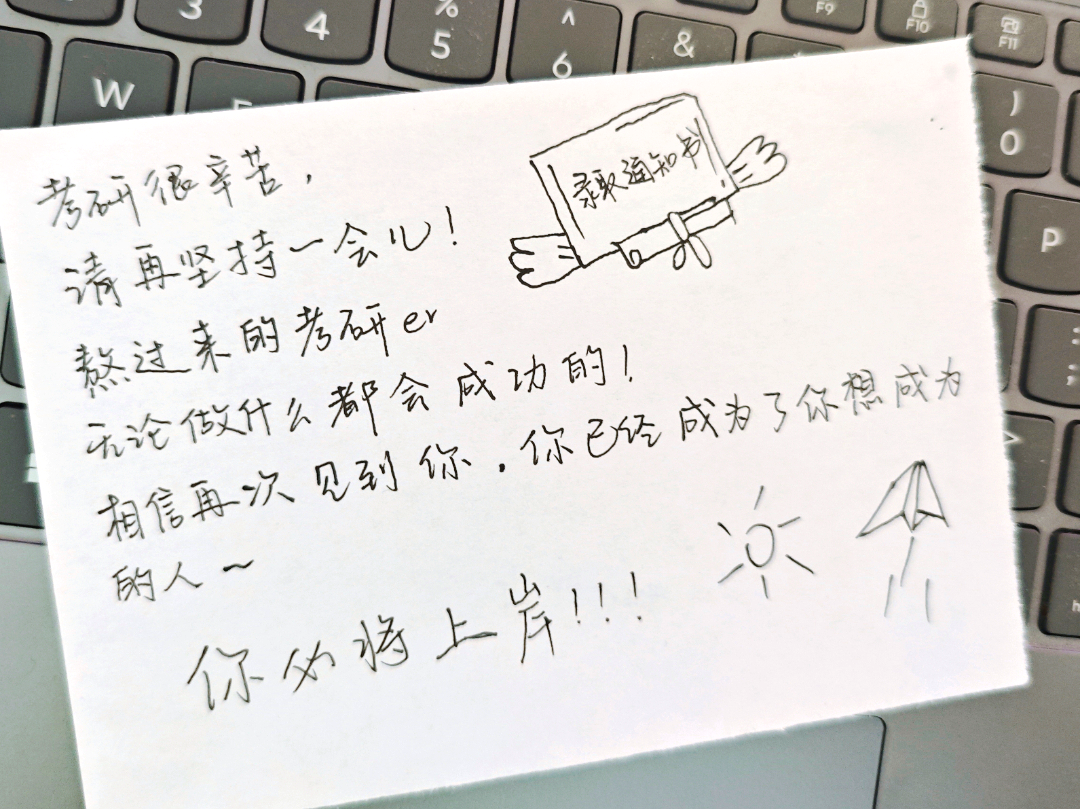 3
4
%
5
^
6
&
F9
F10
F11
W
)
0
P
考研很辛苦,
请再坚持一会儿!
录取通知书
熬过来的考研er
无论做什么都会成功的!
相信再次见到你,你已经成为了你想成为
的人~
你必将上岸!!!